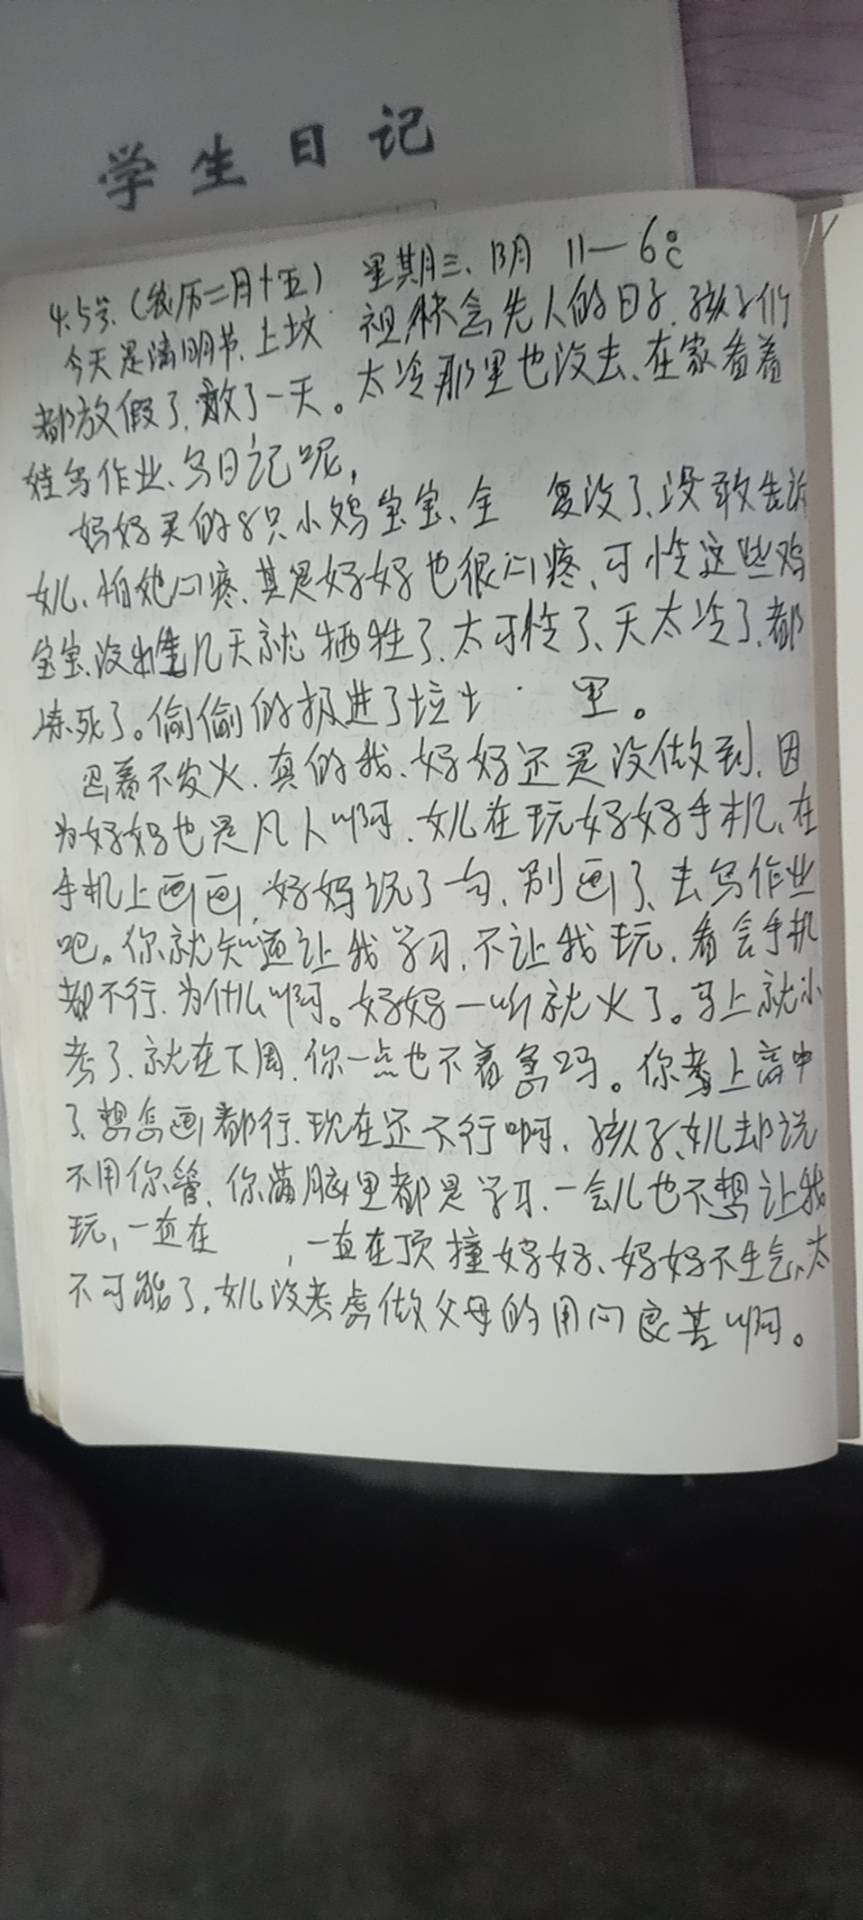 学生日记
4.5号.(农历二月十五) 星期三、阴 11—6℃
今天是清明节.上坟 祖 念先人的日子.孩子们
都放假了.放了一天。太冷那里也没去、在家看着
娃写作业、写日记呢,
妈妈买的8只小鸡宝宝、全 复没了、没敢告诉
女儿、怕她心疼、其是妈妈也很心疼、可怜这些鸡
宝宝、没 几天就牺牲了、太可怜了、天太冷了、都
冻死了。偷偷的扔进了垃土 里。
忍着不发火、真的我、妈妈还是没做到、因
为妈妈也是凡人啊、女儿在玩妈妈手机、在
手机上画画、妈妈说了句、别画了、去写作业
吧。你就知道让我学习、不让我玩、看会手机
都不行、为什么啊。妈妈一听就火了。马上就小
考了、就在下周、你一点也不着急吗。你考上高中
了、想怎画都行、现在还不行啊、孩子、女儿却说
不用你管、你满脑里都是学习、一会儿也不想让我
玩,一直在 ,一直在顶撞妈妈、妈妈不生气、太
不可能了,女儿没考虑做父母的用心良苦啊。